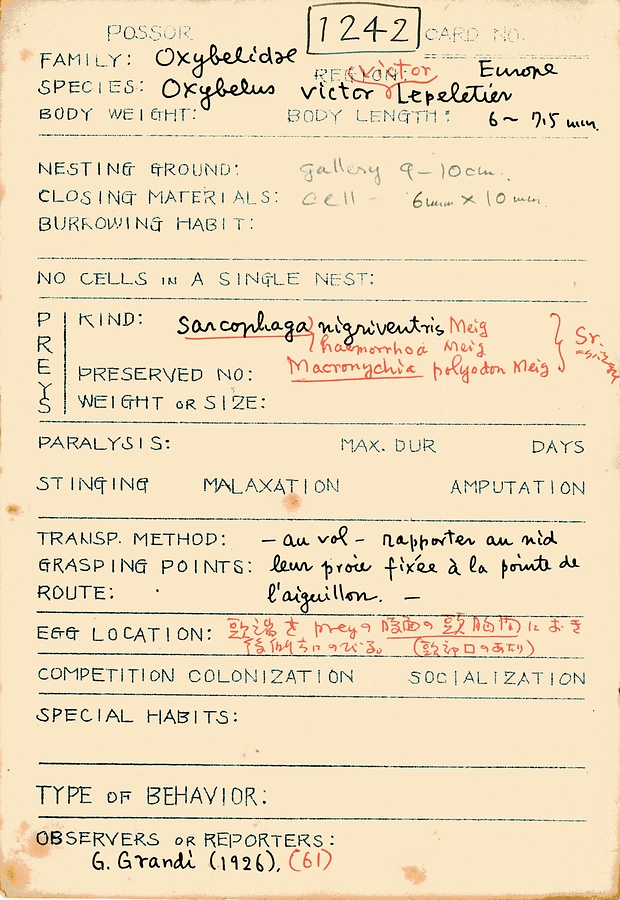 POSSOR 1242 CARD NO.
FAMILY: Oxybelidae
REGION: Europe
victor
SPECIES: Oxybelus victor Lepeletier
BODY WEIGHT: BODY LENGTH: 6~7,5 mm.
NESTING GROUND: gallery 9-10cm.
CLOSING MATERIALS: cell - 6mm × 10mm.
BURROWING HABIT:
NO CELLS IN A SINGLE NEST:
PREYS
KIND: Sarcophaga nigriventris Meig
haemorrhoa Meig
PRESERVED NO: Macronychia polyodon Meig
WEIGHT OR SIZE:
PARALYSIS: MAX. DUR DAYS
STINGING MALAXATION AMPUTATION
TRANSP. METHOD: - au vol - rapporter au nid
GRASPING POINTS: leur proie fixée à la pointe de
ROUTE: l'aiguillon. -
EGG LOCATION: 頭端を preyの腹面の頸 におき
後側方にのびる。 のあたり)
COMPETITION COLONIZATION SOCIALIZATION
SPECIAL HABITS:
TYPE OF BEHAVIOR:
OBSERVERS OR REPORTERS:
G. Grandi (1926), (61)